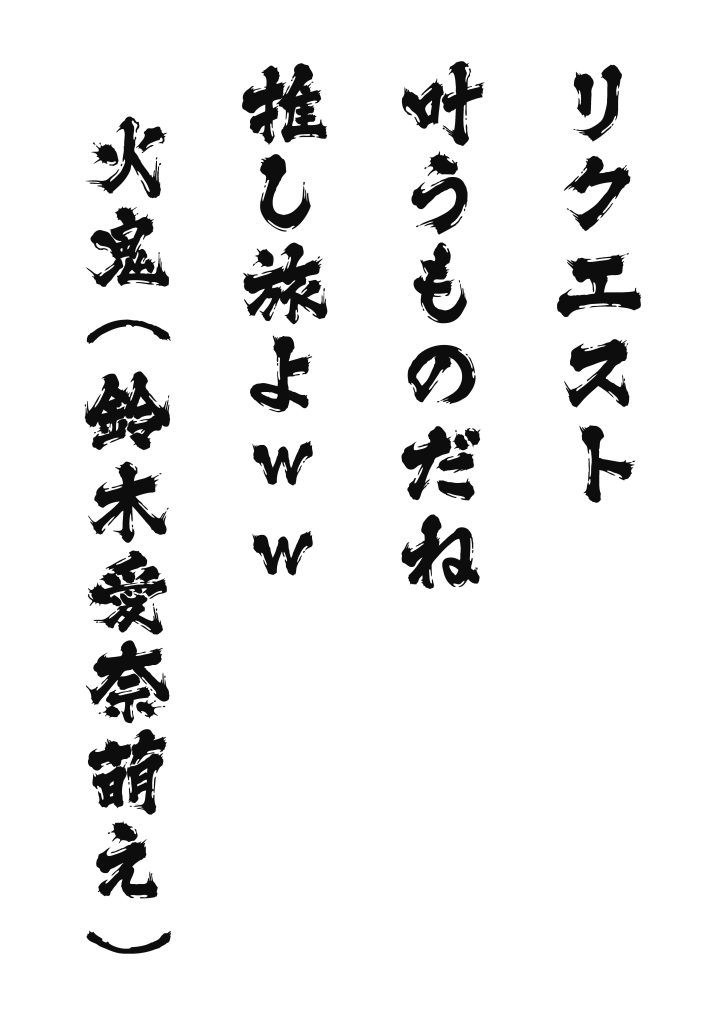 リクエスト
叶うものだね
推し旅よww
火鬼(鈴木愛奈萌え)